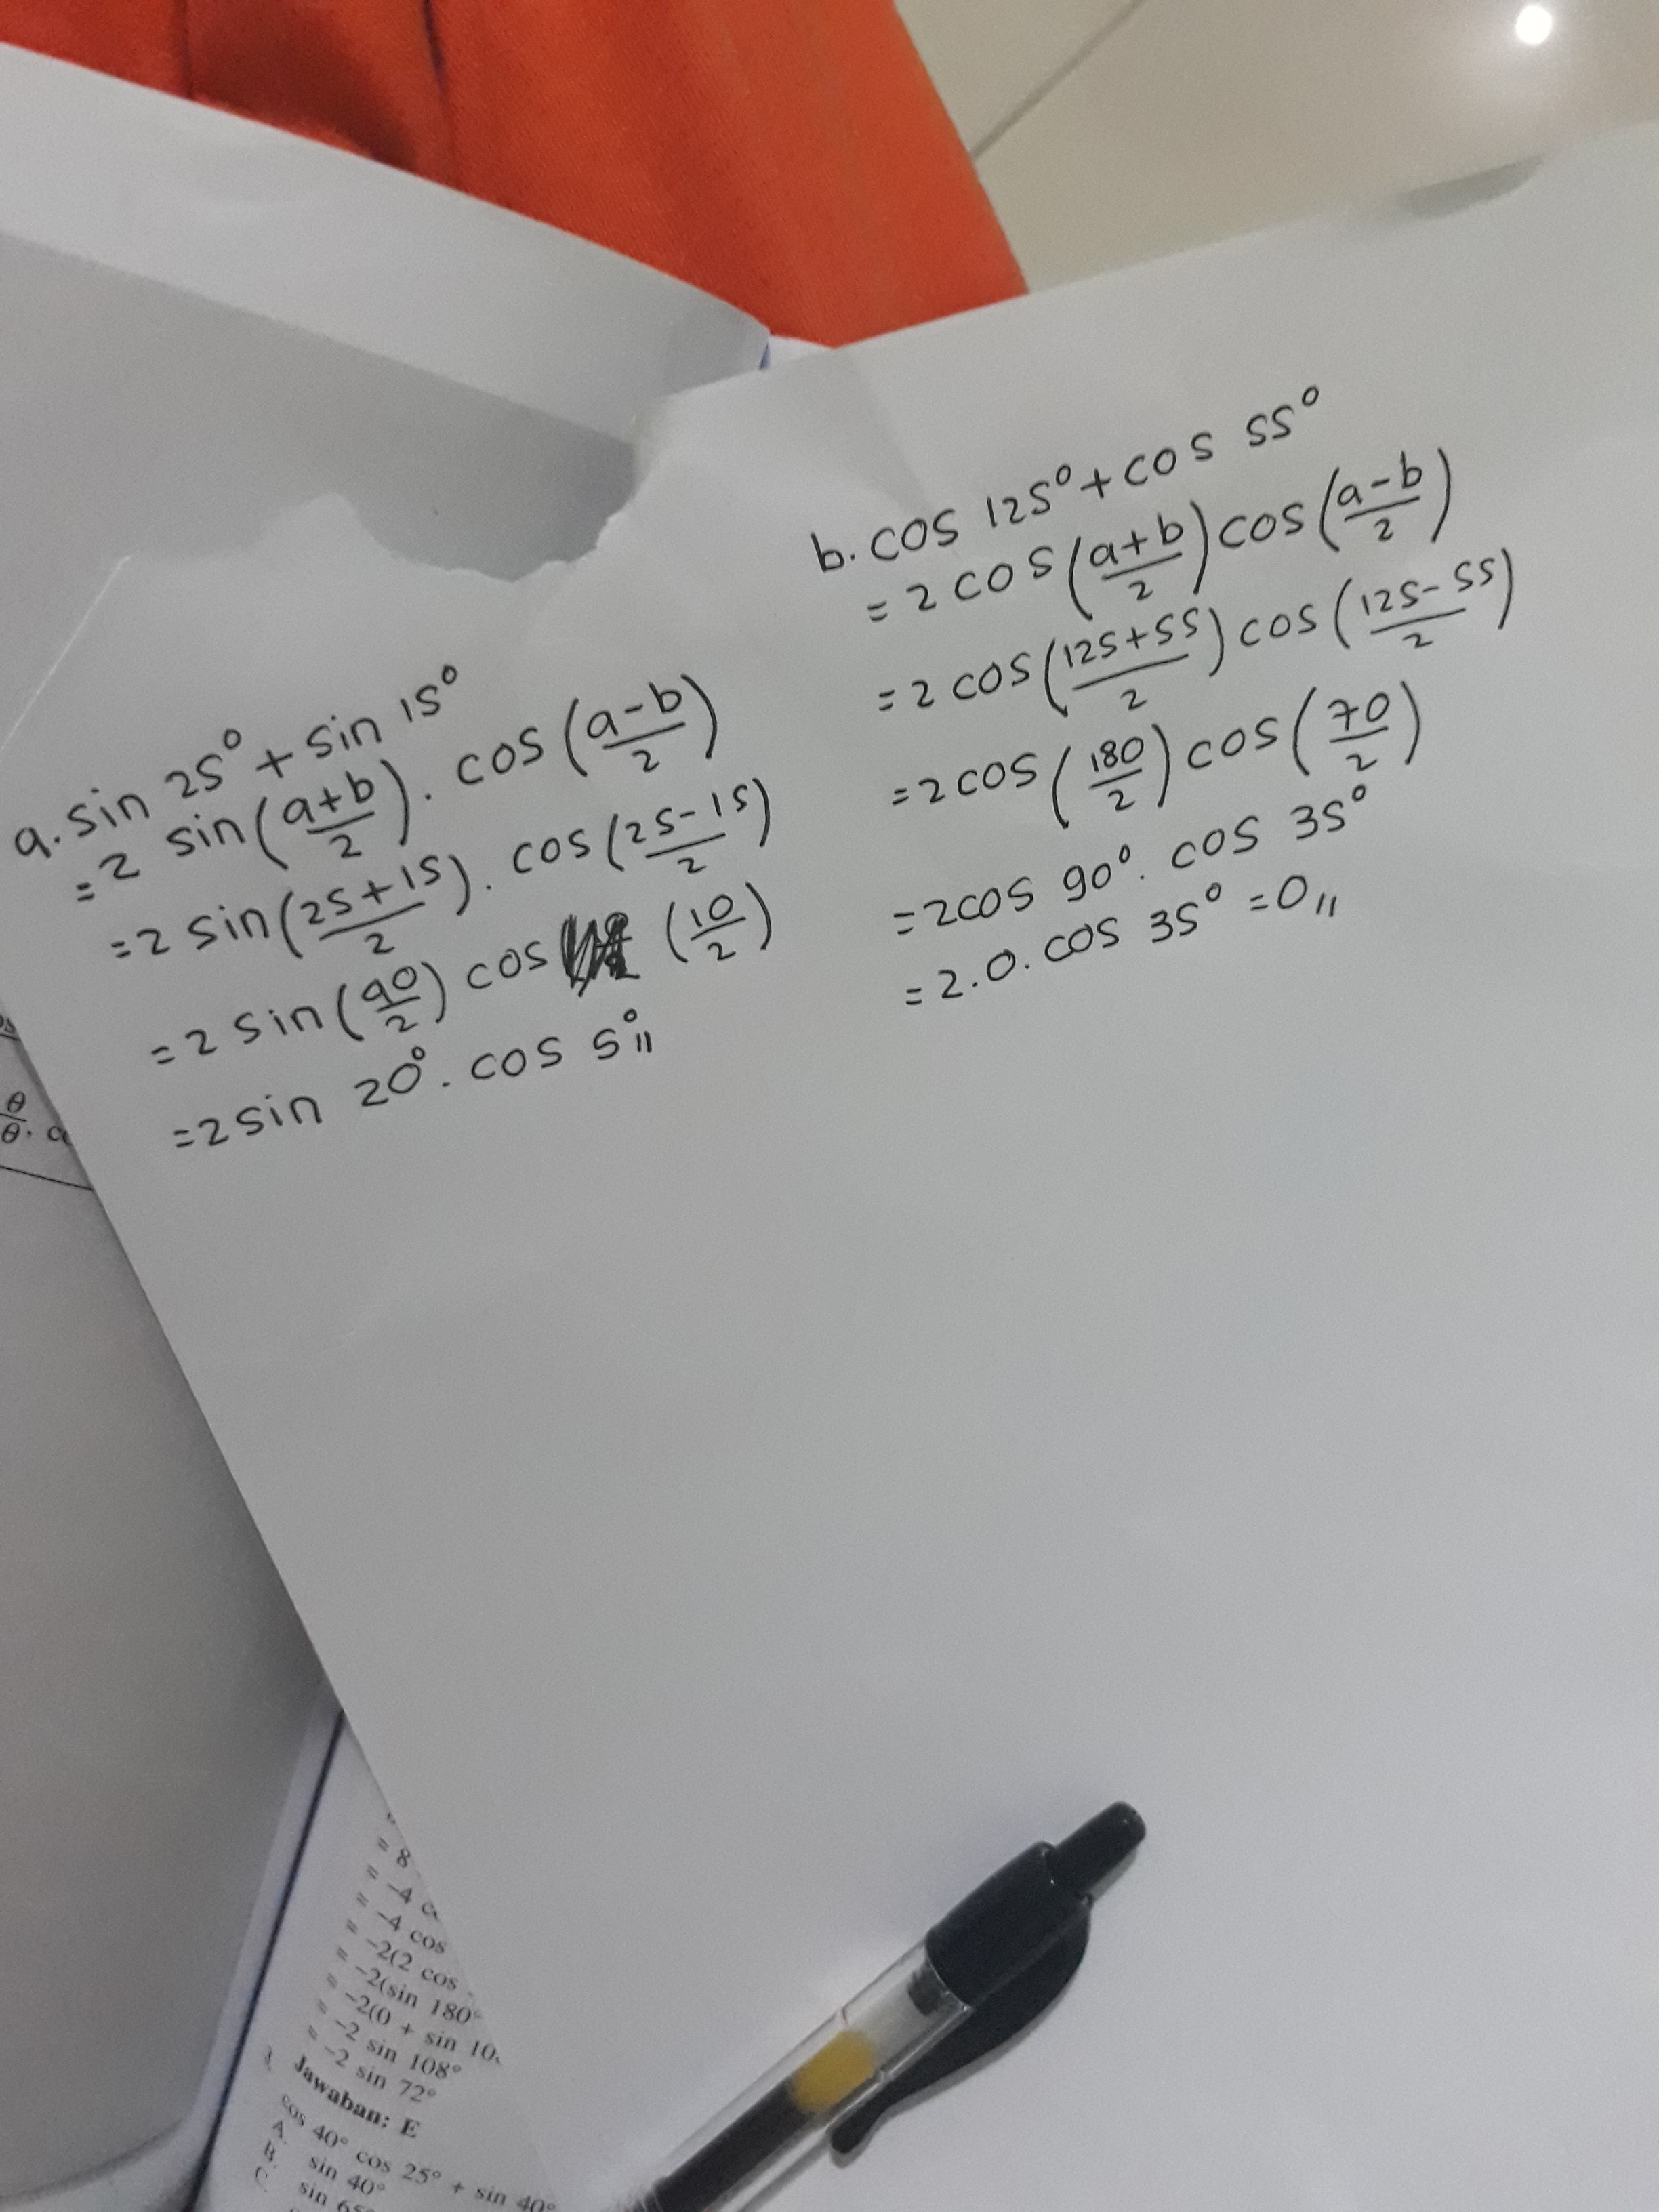 a. sin 25° + sin 15°
= 2 sin (a+b/2) . cos (a-b/2)
= 2 sin (25+15/2) . cos (25-15/2)
= 2 sin (40/2) cos (10/2)
= 2 sin 20° . cos 5° //
b. cos 125° + cos 55°
= 2 cos (a+b/2) cos (a-b/2)
= 2 cos (125+55/2) cos (125-55/2)
= 2 cos (180/2) cos (70/2)
= 2 cos 90° . cos 35°
= 2 . 0 . cos 35° = 0 //
θ
θ .
= 8
= -4
= -4 cos
= -2(2 cos
= -2(sin 180°
= -2(0 + sin 10
= -2 sin 108°
= -2 sin 72°
Jawaban: E
cos 40° cos 25° + sin 40°
A. sin 40°
B. sin 65°
C.